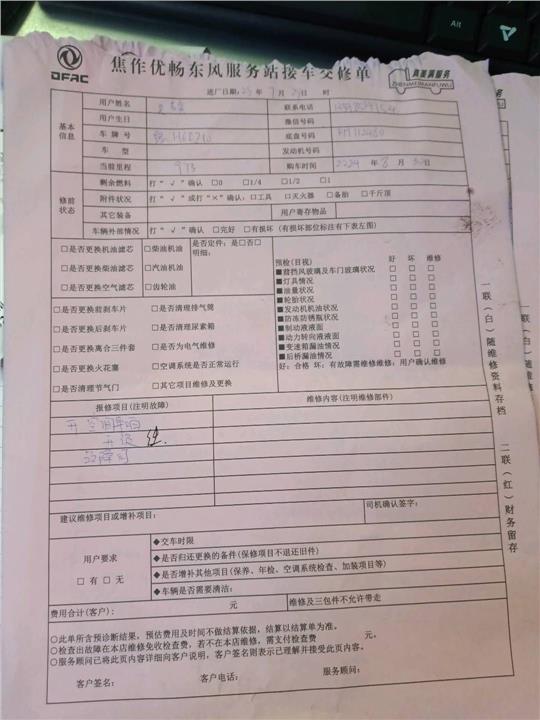 DFAC
焦作优畅东风服务站接车交修单
真美满服务
ZHENMEIMANFUWU
进厂日期: 年 7 月 日 时
基本信息
用户姓名 联系电话
用户生日 微信号码
车牌号 底盘号码
车型 发动机号码
当前里程 973 购车时间 2024 年 8 月 日
修前状态
剩余燃料 打“√”确认 □0 □1/4 □1/2 □1
附件状况 打“√”或打“×”确认:□工具 □灭火器 □备胎 □千斤顶
其它装备 用户寄存物品
车辆外部情况 打“√”确认 □完好 □有损坏(有损坏部位标注有下表左图)
□是否更换机油滤芯 □柴油机油 是否定件:是□否□
明细:
□是否更换柴油滤芯 □汽油机油
□是否更换空气滤芯 □齿轮油
□是否更换前刹车片 □是否清理排气筒
□是否更换后刹车片 □是否清理尿素箱
□是否更换离合三件套 □是否为电气维修
□是否更换火花塞 □空调系统是否正常运行
□是否清理节气门 □其它项目维修及更换
预检(目视) 好 坏 维修
■前挡风玻璃及车门玻璃状况 □ □ □
■灯具情况 □ □ □
■油量状况 □ □ □
■轮胎状况 □ □ □
■发动机机油状况 □ □ □
■防冻防锈瓶状况 □ □ □
■制动液液面 □ □ □
■动力转向液液面 □ □ □
■变速箱漏油情况 □ □ □
■后桥漏油情况 □ □ □
好:合格 坏:有故障需维修维修,用户确认维修
报修项目(注明故障) 维修内容(注明维修部件)
开空调
故障灯
建议维修项目或增补项目: 司机确认签字:
用户要求
□有 □无
◆交车时限
◆是否归还更换的备件(保修项目不退还旧件)
◆是否增补其他项目(保养、年检、空调系统检查、加装项目等)
◆车辆是否需要清洁:
费用合计(客户): 元 维修及三包件不允许带走
○此单所含预诊断结果,预估费用及时间不做结算依据,结算以结算单为准。
○检查出故障在本店维修免收检查费,若不在本店维修,需支付检查费 元。
○服务顾问已将此页内容详细向客户说明,客户签名则表示已理解并接受此页内容。
客户签名: 客户电话: 服务顾问:
一联(白)随维修资料存档 二联(红)财务留存
Alt